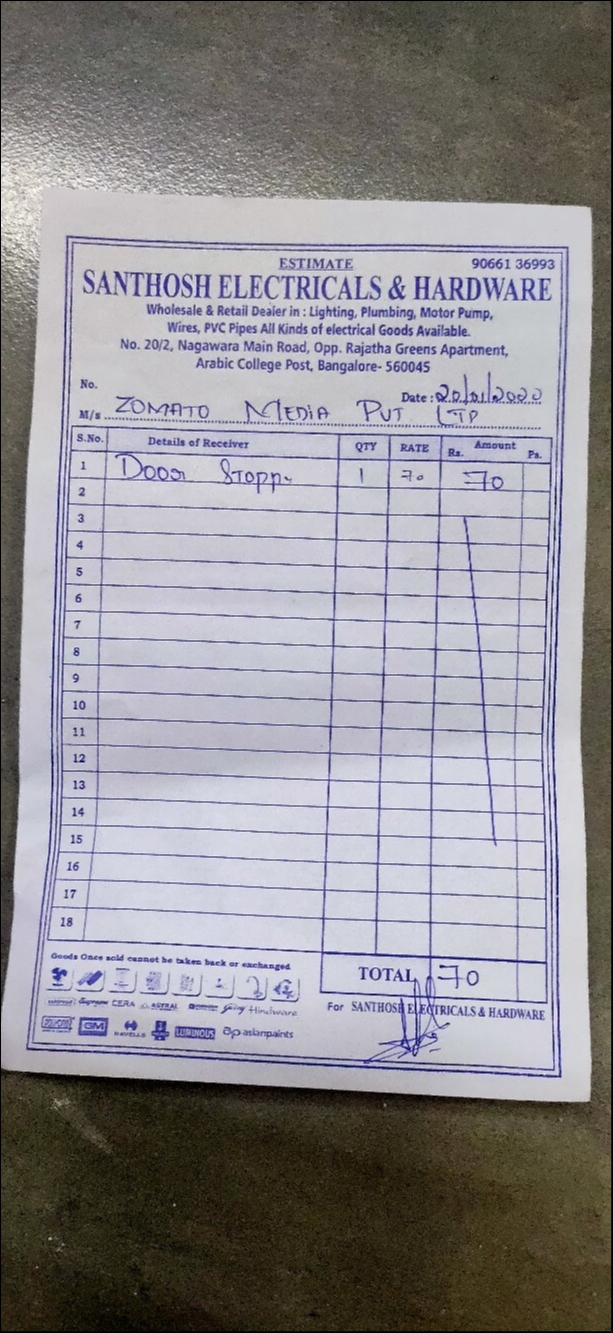 ESTIMATE 90661 36993
SANTHOSH ELECTRICALS & HARDWARE
Wholesale & Retail Dealer in : Lighting, Plumbing, Motor Pump,
Wires, PVC Pipes All Kinds of electrical Goods Available.
No. 20/2, Nagawara Main Road, Opp. Rajatha Greens Apartment,
Arabic College Post, Bangalore- 560045
No. Date : 20/01/2020
M/s ZOMATO MEDIA PVT LTD
S.No. Details of Receiver QTY RATE Amount Rs. Ps.
1 Door 1 70 70
2
3
4
5
6
7
8
9
10
11
12
13
14
15
16
17
18
Goods Once sold cannot be taken back or exchanged
TOTAL 70
For SANTHOSH ELECTRICALS & HARDWARE
CERA ASTRAL Hindware
GM HAVELLS LUMINOUS ap asianpaints